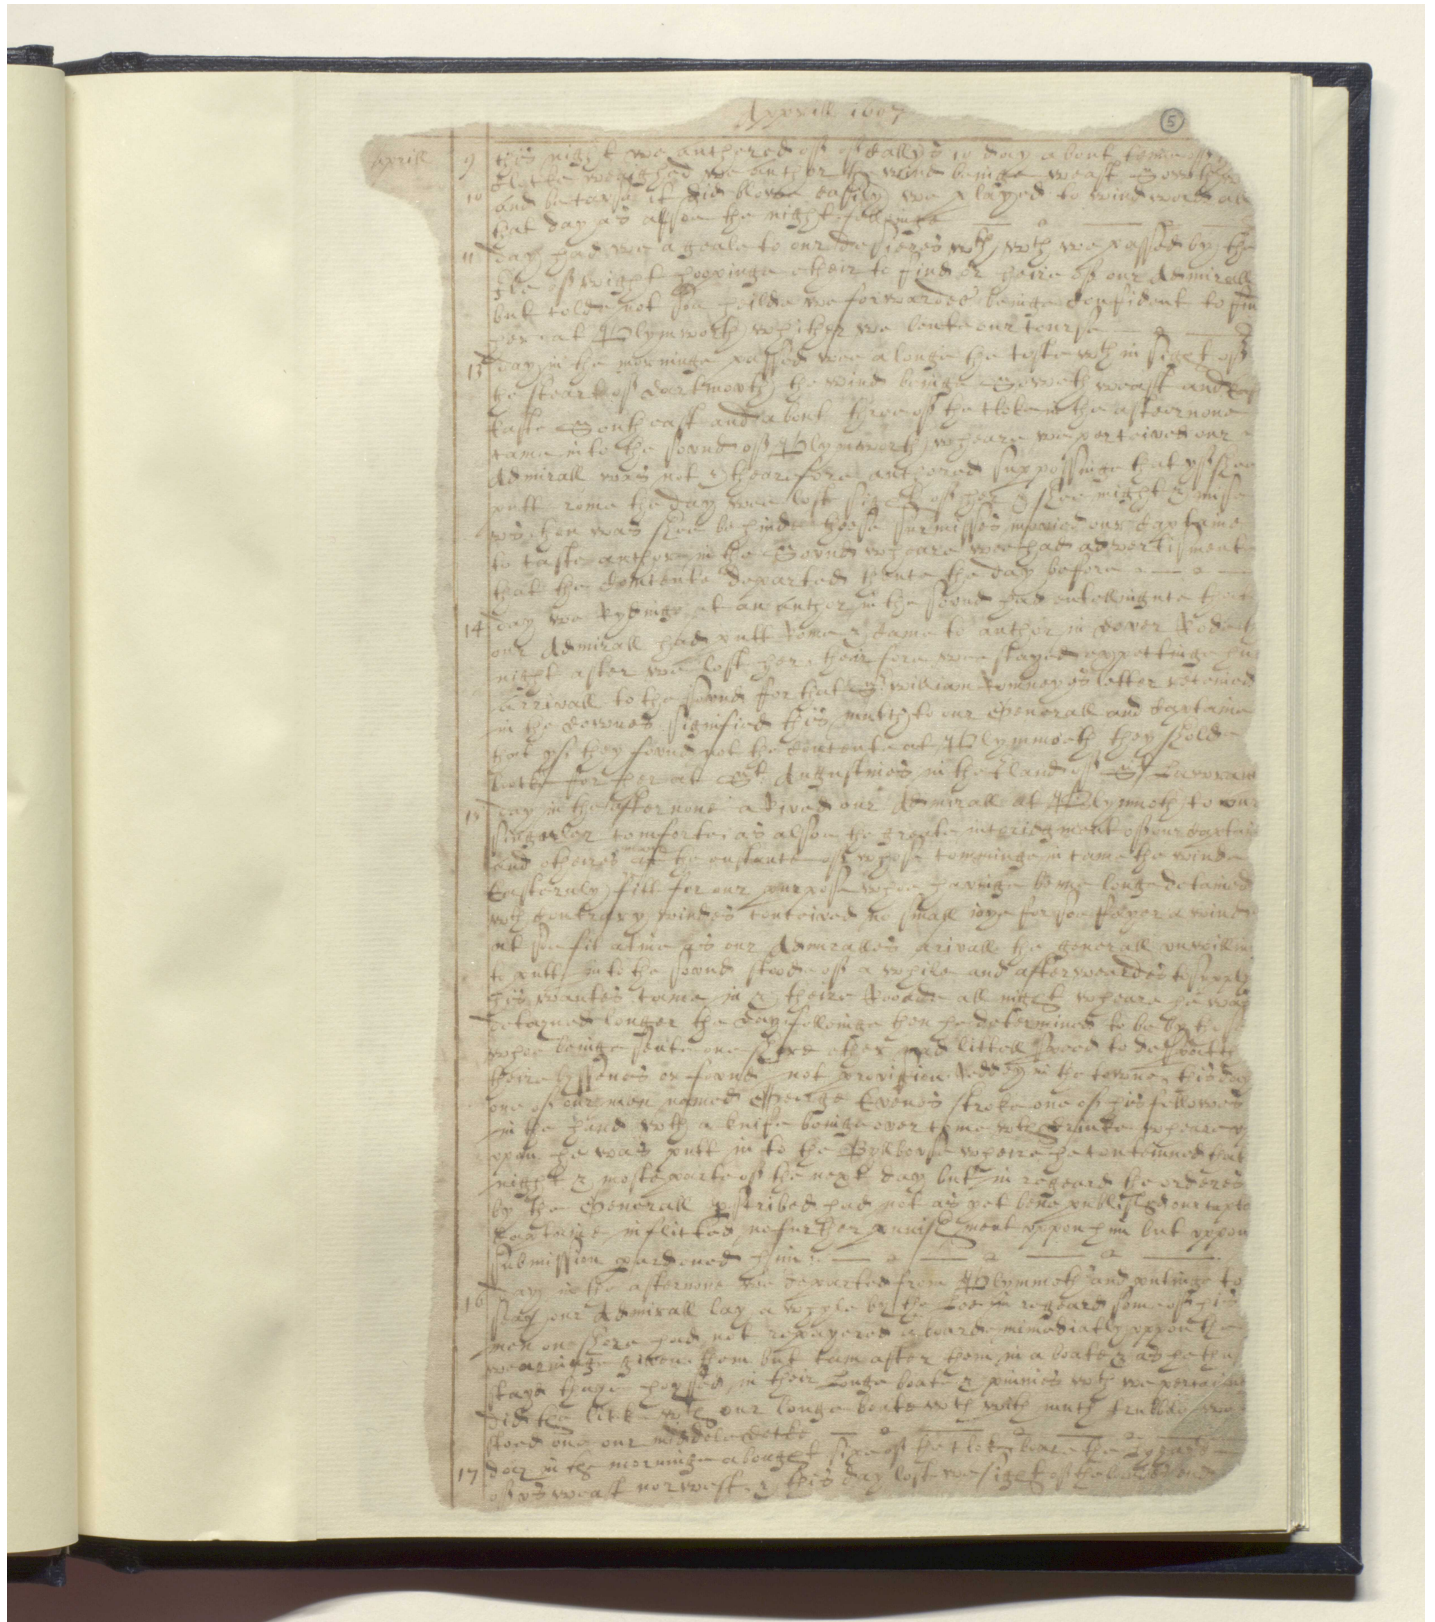 Apprill 1607
5
Aprill 9 this night we anchored of of deallys 10 day about tenne of
clocke weighed we anchor the wind beinge weast Sowth
10 and because it did blowe easily we played to windward all
that day as allsoe the night followinge
11 day had wee a goale to our desieres wth wch we passed by the
Ile of wight hoopinge their to find or heire of our Admirall
but colde not soe heilde we forwardes beinge confident to fin
her at Plymworth whither we bente our course
13 day in the morninge passed wee alonge the coste wth in siget of
the steart of dartmorth the wind beinge Soweth weast and
easte South east and about three of the cloke in the afternone
came into the sound of Plymworth wheare we perceived our
Admirall was not thearefore anchored supposinge that yf shee
putt rome the day wee lost siget of her shee might misse
us then was shee behinde theese surmisses moved our Captaine
to caste anchor in the Sound wheare wee had advertisment
that the Contente departed thence the day before
14 day we Rydinge at an anchor in the sound had entellingnce that
our Admirall had putt Rome & came to anchor in dover Rode the
night after we lost her theirfore we stayed expectinge his
arrivall to the sound for that Sr william Romneyes letter receined
in the downes signified this mutch to our Generall and Captaine
that yf they found not the Contente at Plymmoth they sholde
looke for her at St Augustines in the Iland of St Lawrance
15 day in the afternone arived our Admirall at Plymmoth to our
singuler comforte as alsoe the greate incoridgment of our Captaine
and otheires at the enstante of whose comminge in came the winde
Easternly fitt for our purpose whoe havinge beine longe detained
wth contrary windes conceived no small ioye for soe fayer a wind
at soe fit atime as our Admiralles arivall the generall unwillin
to putt in to the sound stoode of a while and afterweardes to supply
his wantes came in & theire Roade all night wheare he was
detayned longer the day followinge then he determined to be by the
whoe beinge sente one shore ether had littell speed to despatch
theire bissenes or found not provision reddy in the towne, this day
one of our men named George Evenes stroke one of his fellowes
in the hand wth a knife beinge overcome wth drinke wheare
upon he was putt in to the Bylbowse wheire he conteinued that
night & moste parte of the next day but in regeard the orderes
by the Generall prescribed had not as yet bene published our
Captaine inflicted no further punishment uppon him but uppon
submission pardoned him
16 day in the afternone we departed from Plymmoth and putinge to
sea our Admirall lay a whyle by the Lee in regeard som of his
men one shore had not repayered aboarde immediatly uppon the
wearninge given them but cam after them in a boate & as he thus
stayd thaye hoysed in their Longe boate & pinnies wch we perceivinge
did the like wth our longe boate wch with mutch trubble we
stoed one our middele decke
17 day in the morninge abought sixe of the clok beare the Lyzard
of us weast norwest & this day lost we siget of the land